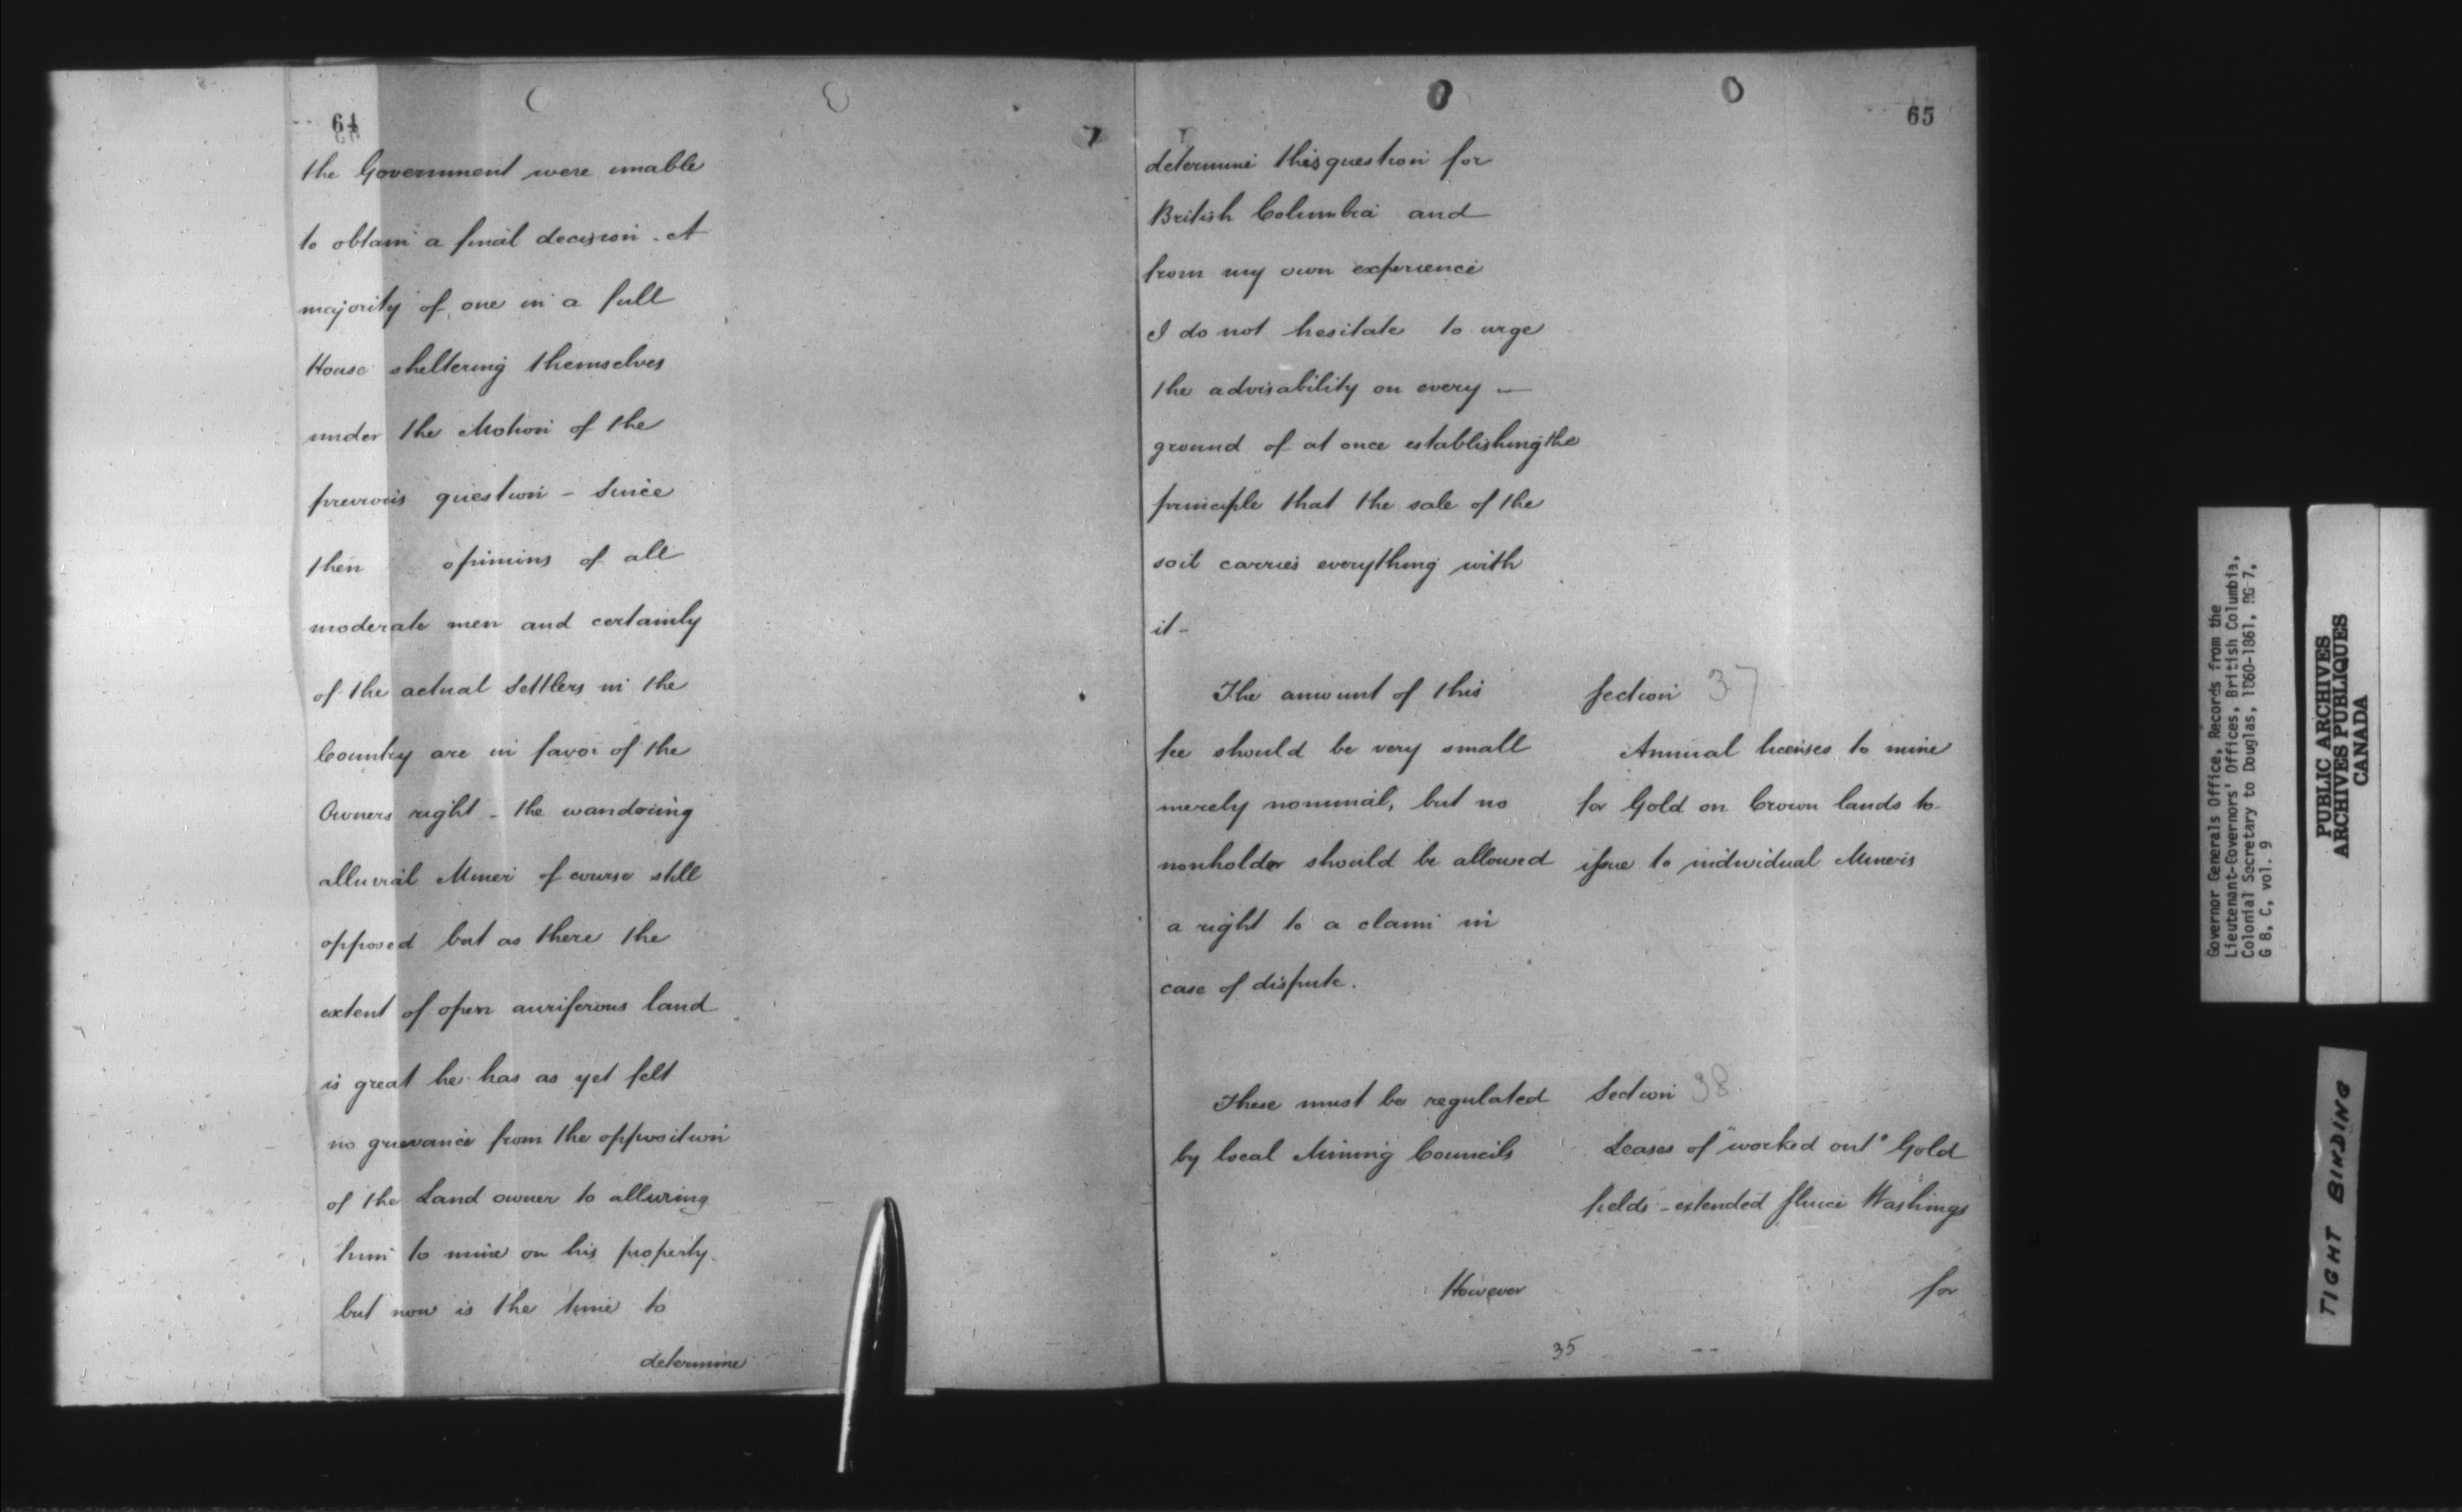 64
the Government were unable
to obtain a final decision. A
majority of one in a full
House sheltering themselves
under the Motion of the
previous question - Since
then opinions of all
moderate men and certainly
of the actual Settlers in the
Country are in favor of the
Owners right - the wandering
alluvial Miner of course still
opposed but as there the
extent of open auriferous land
is great he has as yet felt
no grievance from the opposition
of the Land owner to alluring
him to mine on his property.
but now is the time to
determine
65
determine this question for
British Columbia and
from my own experience
I do not hesitate to urge
the advisability on every —
ground of at once establishing the
principle that the sale of the
soil carries everything with
it -
The amount of this
fee should be very small
merely nominal, but no
nonholder should be allowed
a right to a claim in
case of dispute.
Section 37
Annual licenses to mine
for Gold on Crown lands to
issue to individual Miners
These must be regulated
by local Mining Councils
However
Section 38
Leases of "worked out" Gold
fields - extended sluice Washings
for
35
Governor Generals Office, Records from the
Lieutenant-Governors' Offices, British Columbia,
Colonial Secretary to Douglas, 1860-1861, RG 7,
G 8, C, vol. 9
PUBLIC ARCHIVES
ARCHIVES PUBLIQUES
CANADA
TIGHT BINDING